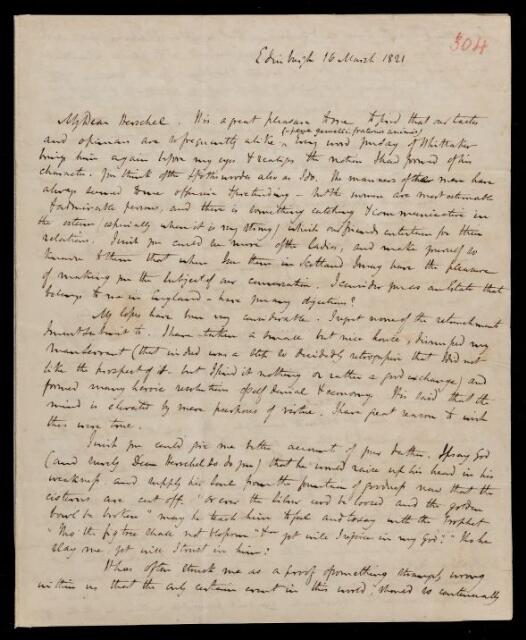 304
Edinburgh 16 March 1821
My Dear Herschel. It is a great pleasure to me to find that our tastes
and opinions are so frequently alike Every word you say of Whittaker
bring him again before my eyes & realizes the notion I had formed of his
character. You think of the also as I do. The manners of the men have
always seemed to me offensive & pretending – but the women are most estimable
& admirable persons, and there is something catching & communicative in
the esteem (especially when it is very strong) which our friends entertain for their
relations. I wish you could see more of the Ladies, and make yourself so
known to them that when I see them in Scotland I may have the pleasure
of making you the subject of our conversation. I consider you as an Estate that
belongs to me in England – have you any objections?
My loss has been very considerable. I regret none of the retrenchments
I must submit to. I have taken a small but nice house, dismissed my
manservant (that indeed was a step so decidedly retrograde that I did not
like the prospect of it – but I find it nothing or rather a good exchange) and
formed many heroic resolutions of self denial & economy. It is said that the
mind is elevated by mere purposes of virtue. I have great reason to wish
this were true.
I wish you could give me better account of your father. I pray God
(and surely Dear Herschel so do you) that he would raise up his head in his
weakness, and supply his soul from the fountain of goodness now that the
cisterns are cut off. "or ever the silver cord be loosed and the golden
bowl be broken" may he teach him to feel and to say with the Prophet
"Tho the fig tree shall not blossom &c yet will I rejoice in my God." "Tho he
slay me, yet will I trust in him."
It has often struck me as a proof of something strangely wrong
within us that the only certain event in this world should so continually